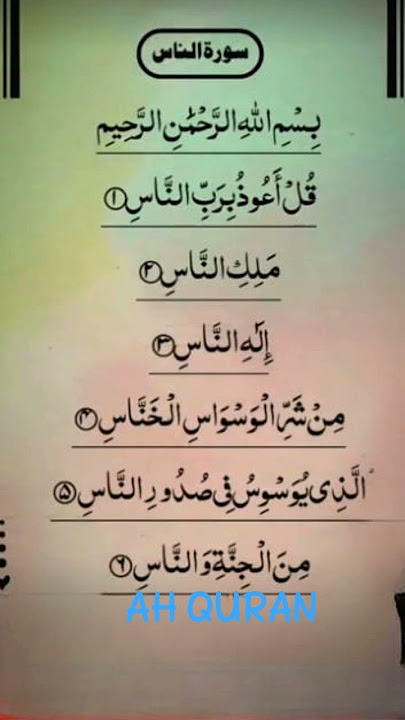 سورة الناس
بِسْمِ اللهِ الرَّحْمٰنِ الرَّحِيْمِ
قُلْ أَعُوذُ بِرَبِّ النَّاسِ ۝۱
مَلِكِ النَّاسِ ۝۲
إِلٰهِ النَّاسِ ۝۳
مِنْ شَرِّ الْوَسْوَاسِ الْخَنَّاسِ ۝۴
الَّذِى يُوَسْوِسُ فِى صُدُورِ النَّاسِ ۝۵
مِنَ الْجِنَّةِ وَالنَّاسِ ۝۶
AH QURAN